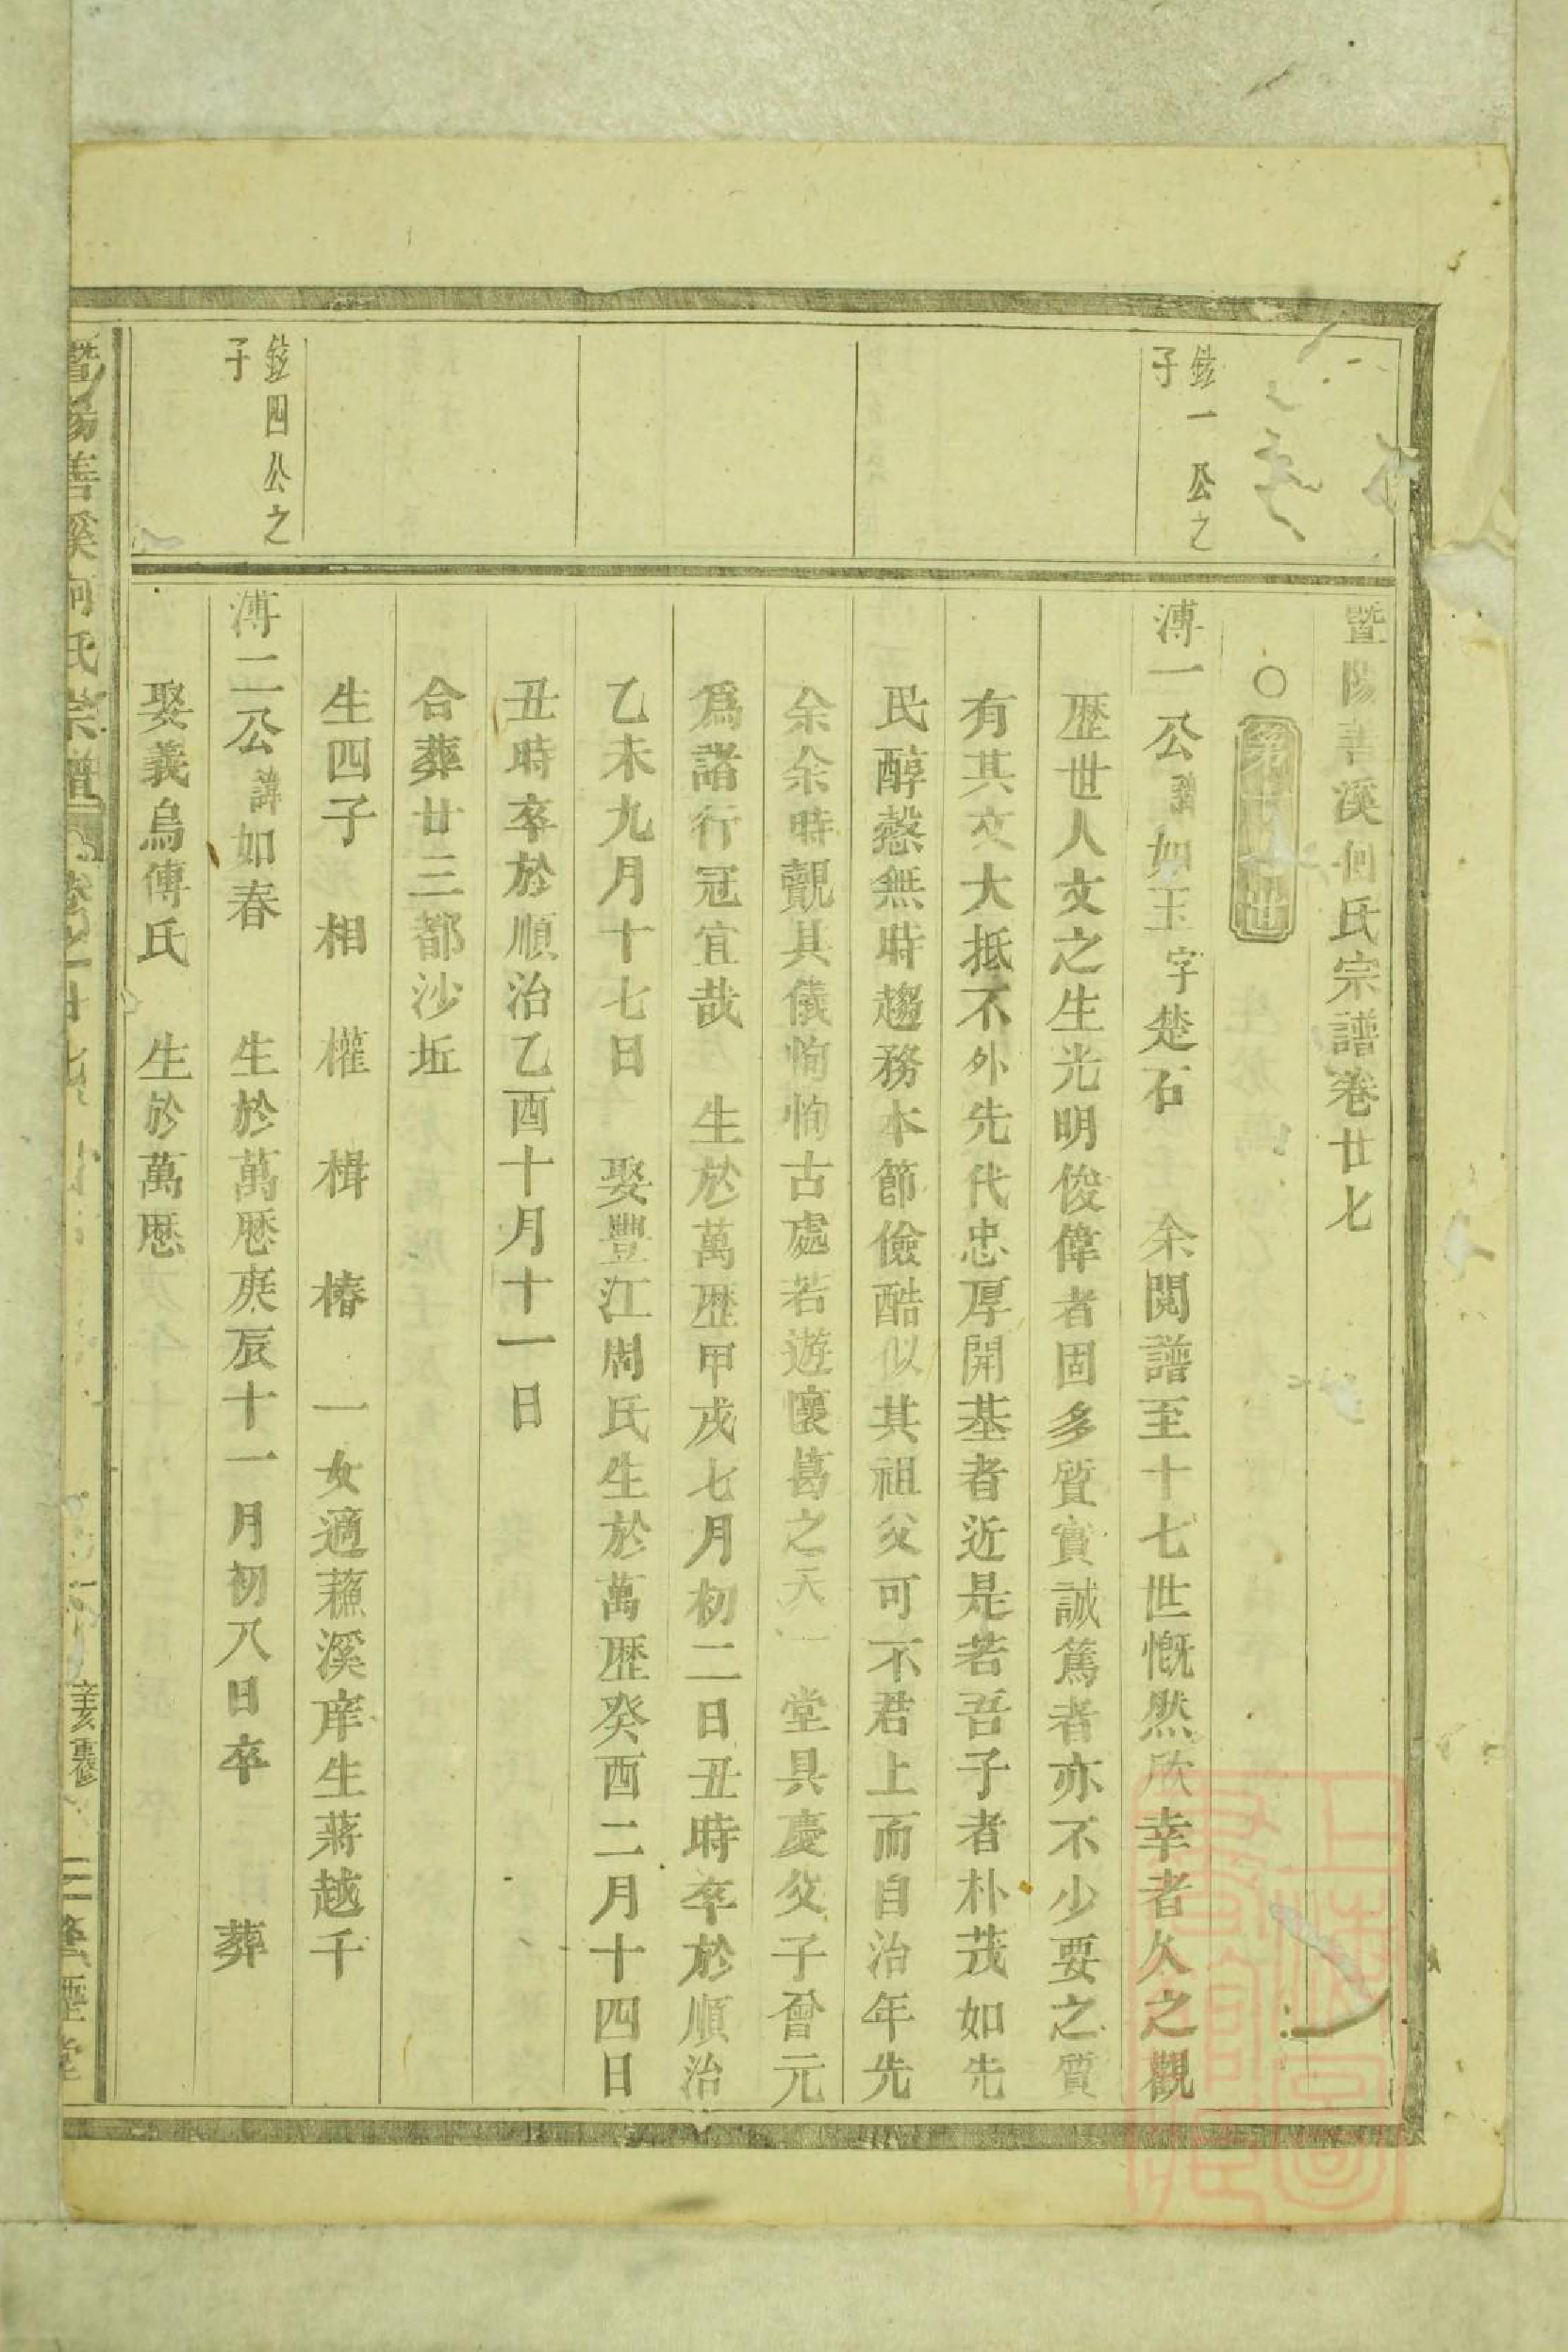 暨陽善溪何氏宗譜卷廿七
○第十七世
鉉一公之
子
溥一公諱如玉字楚石 余閱譜至十七世慨然欣幸者久之觀
歷世人文之生光明俊偉者固多質實誠篤者亦不少要之質
有其文大抵不外先代忠厚開基者近是若吾子者朴茂如先
民醇慤無時趨務本節儉酷似其祖父可不君上而自治年先
余余時覿其儀恂恂古處若遊懷葛之天一堂具慶父子曾元
爲諸行冠宜哉 生於萬歷甲戌七月初二日丑時卒於順治
乙未九月十七日 娶豐江周氏生於萬歷癸酉二月十四日
丑時卒於順治乙酉十月十一日
合葬廿三都沙坵
生四子 相 權 楫 椿 一女適蘓溪庠生蔣越千
鉉四公之
子
溥二公諱如春 生於萬厯庚辰十一月初八日卒 葬
娶義烏傅氏 生於萬厯
暨陽善溪何氏宗譜 卷之廿七 辛亥重修